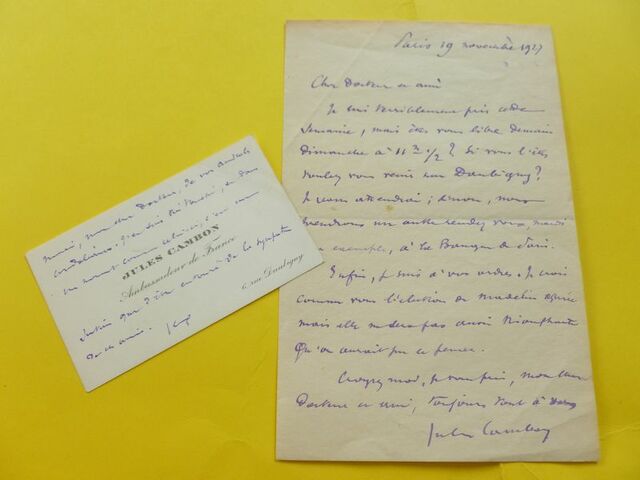 Paris 19 novembre 1927
Cher Docteur et ami
Je suis terriblement pris cette
semaine, mais êtes vous libre demain
dimanche à 11 h 1/2 ? Si vous l'êtes
voulez vous venir rue Daubigny ?
Je vous attendrai ; sinon, nous
prendrons un autre rendez vous, mardi
par exemple, à la Banque de Paris.
Enfin, je suis à vos ordres. Je crois
comme vous l'élection de Madelin assurée
mais elle ne sera pas aussi triomphante
Qu'on aurait pu le penser.
Croyez moi, je vous prie, mon cher
Docteur et ami, toujours tout à vous
Jules Cambon
merci, mon cher Docteur, de vos amitiés
cordiales. Je suis très touché, et dans
un moment comme celui-ci, c'est une
JULES CAMBON
Ambassadeur de France
6, rue Daubigny
que d'être entouré de la sympathie
de ses amis.